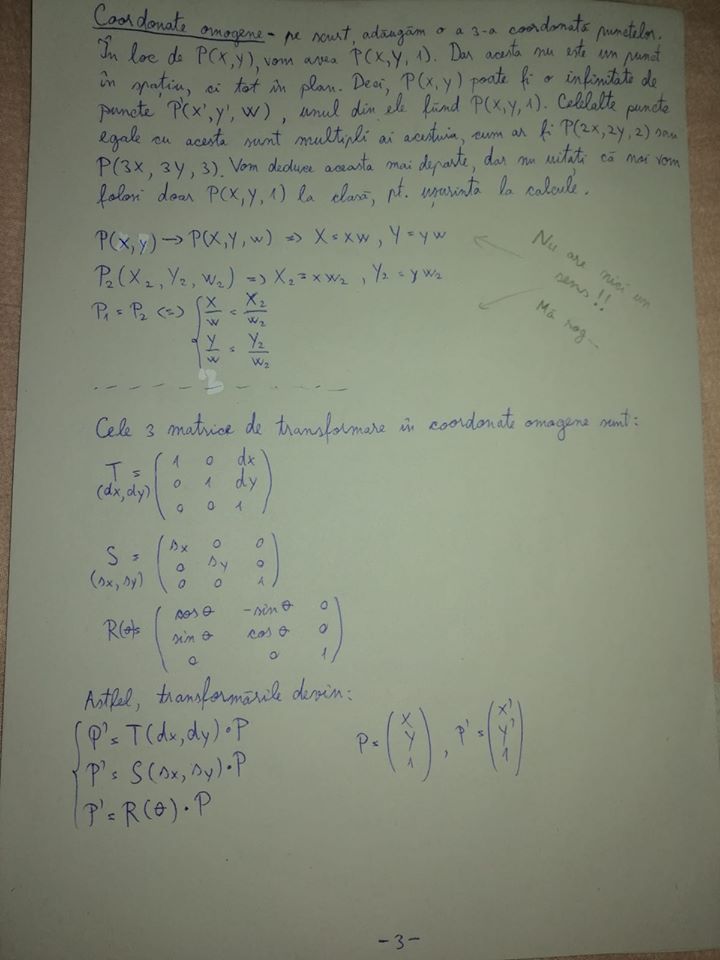 Coordonate omogene - pe scurt, adăugăm o a 3-a coordonată punctelor.
În loc de P(x,y), vom avea P(x,y,1). Dar acesta nu este un punct
în spațiu, ci tot în plan. Deci, P(x,y) poate fi o infinitate de
puncte P'(x',y',w), unul din ele fiind P(x,y,1). Celelalte puncte
egale cu acesta sunt multipli ai acestuia, cum ar fi P(2x,2y,2) sau
P(3x,3y,3). Vom deduce aceasta mai departe, dar nu uitați că noi vom
folosi doar P(x,y,1) la clasă, pt. ușurința la calcule.
P(x,y) → P(X,Y,w) => X = xw, Y = yw
P₂(X₂,Y₂,w₂) => X₂ = xw₂, Y₂ = yw₂
Nu are nici un
sens!!
Mă rog-
P₁ = P₂ <=> { X/w = X₂/w₂
Y/w = Y₂/w₂
Cele 3 matrice de transformare în coordonate omogene sunt:
T = ( 1 0 dx
(dx,dy) 0 1 dy
0 0 1 )
S = ( sx 0 0
(sx,sy) 0 sy 0
0 0 1 )
R(θ)= ( cos θ -sin θ 0
sin θ cos θ 0
0 0 1 )
Astfel, transformările devin:
{ P' = T(dx,dy)·P
P' = S(sx,sy)·P
P' = R(θ)·P
P = ( x y 1 ), P' = ( x' y' 1 )
-3-